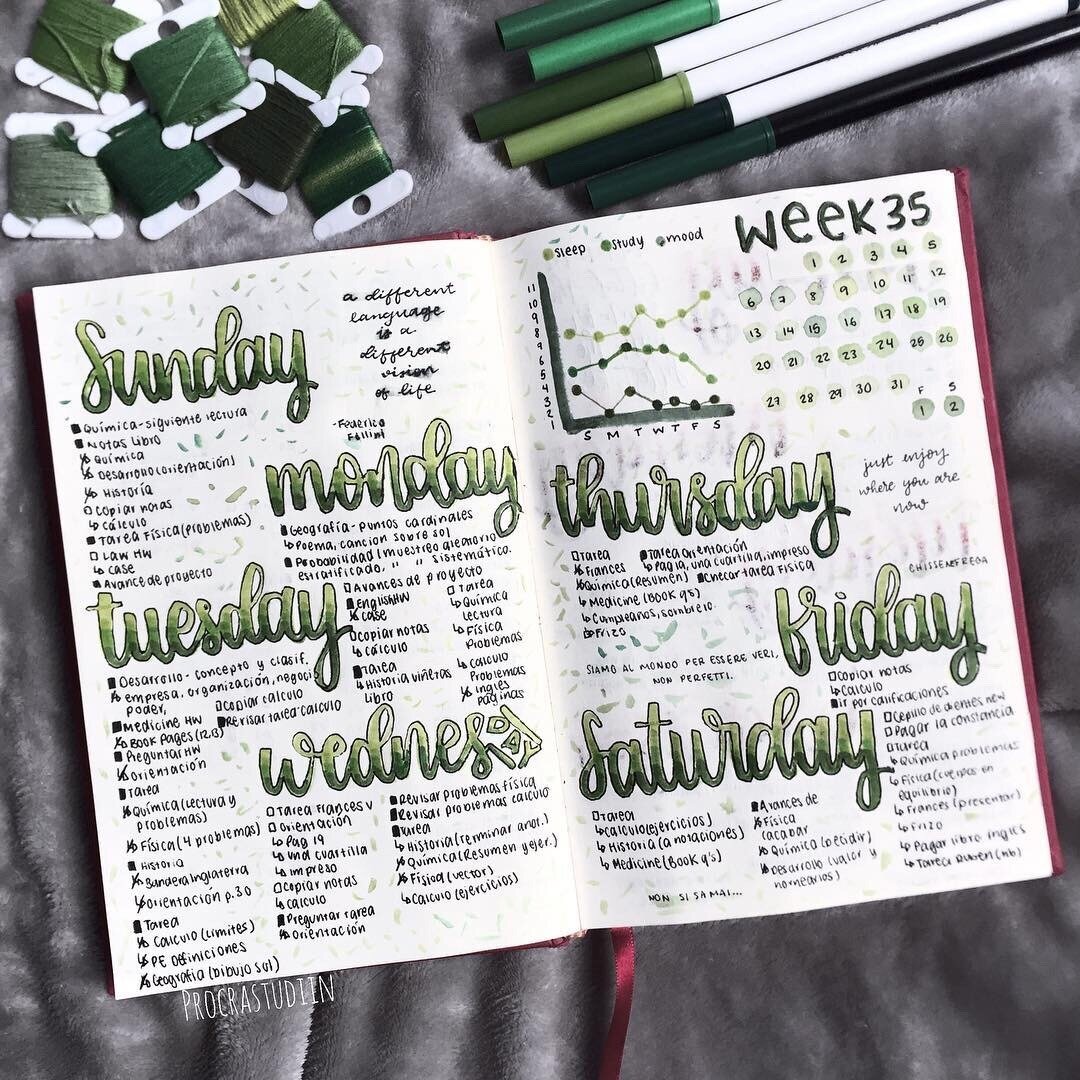 Sunday
a different
language
is a
different
vision
of life
-Federico
Fellini
Química - siguiente lectura
Notas Libro
Química
Desarrollo (orientación)
Historia
Copiar notas
cálculo
Tarea Física (problemas)
Law HW
case
Avance de proyecto
monday
Geografía - puntos cardinales
Poema, canción sobre sol
Probabilidad (muestreo aleatorio
estratificado, " " sistemático.
Avances de proyecto
English HW
case
copiar notas
cálculo
Tarea
Historia viñetas
libro
Tarea
Química
lectura
Física
Problemas
cálculo
Problemas
Inglés
páginas
tuesday
Desarrollo - concepto y clasif.
empresa, organización, negoci
poder,
Copiar calculo
Medicine HW
Revisar tarea calculo
Book Pages (12,13)
Preguntar HW
Orientación
Tarea
Química (lectura y
problemas)
Física (4 problemas)
Historia
Bandera Inglaterra
Orientación p.30
Tarea
Cálculo (Limites)
PE Definiciones
Geografía (Dibujo Sol)
wednesDAY
Tarea Frances v
Orientación
Pag 19
Und cuartilla
impreso
Copiar notas
calculo
Preguntar tarea
Orientación
Revisar problemas física
Revisar problemas calculo
Tarea
Historia (terminar anot.)
Química (Resumen y ejer.)
Física (vector)
Calculo (ejercicios)
PROCRASTUDIIN
sleep study mood
WEEK 35
11
10
9
8
6
5
4
3
2
1
S M T W T F S
1 2 3 4 5
6 7 8 9 10 11 12
13 14 15 16 17 18 19
20 21 22 23 24 25 26
27 28 29 30 31
F S
1 2
thursday
just enjoy
where you are
now
CHISSENEFREGA
Tarea
Frances
Química (Resumen)
Medicine (BOOK q's)
Cumpleaños, sombrero
Frizo
Tarea Orientación
Pag 19, una cuartilla, impreso
Checar tarea Física
SIAMO AL MONDO PER ESSERE VERI,
NON PERFETTI.
friday
Copiar notas
Calculo
ir por calificaciones
Cepillo de dientes new
Pagar la constancia
Tarea
Química problemas
Física (cuerpos en
equilibrio)
Francés (presentar)
Frizo
Pagar libro ingles
Tarea Ruben (nb)
saturday
Tarea
Calculo (ejercicios)
Historia (a notaciones)
Medicine (BOOK q's)
Avances de
Física
(acabar
Química (decidir)
Desarrollo (valor y
NON SI SA MAI...